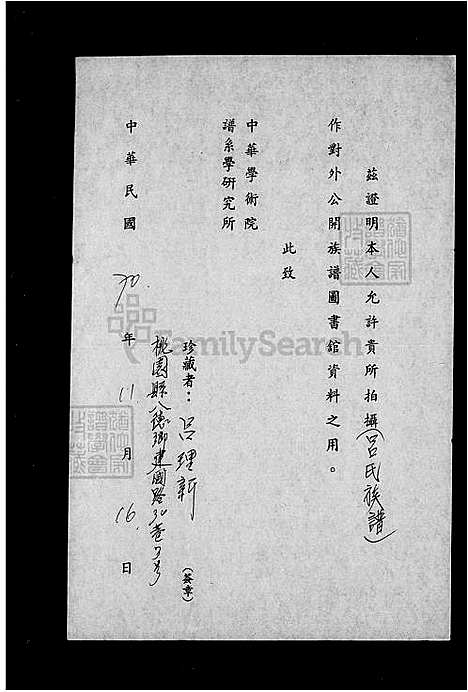 茲證明本人允許貴所拍攝(呂氏族譜)
作對外公開族譜圖書館資料之用。
此致
中華學術院
譜系學研究所
珍藏者:呂理新
桃園縣八德鄉建國路30巷7号
(簽章)
中華民國70年11月16日
FamilySearch